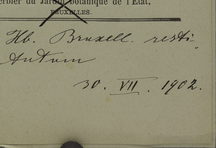 erbier du Jardin botanique de l'État,
BRUXELLES.
Hb. Bruxell. resti-
tutum
30. VII. 1902.